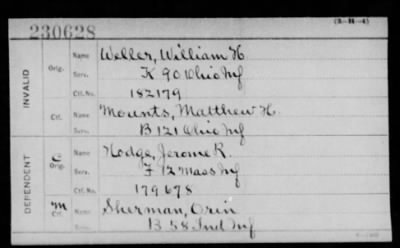 (3-H-4)
230628
Name Weller, William H
Orig. Serv. K 90 Ohio Inf
Ctf. No. 182179
INVALID
Ctf. Name Mounts, Matthew H.
Serv. B 121 Ohio Inf
C Orig. Name Hodge, Jerome R.
Serv. F 12 Mass Inf
Ctf. No. 179678
DEPENDENT
m Ctf. Name Sherman, Orin
Serv. B 58 Ind Inf